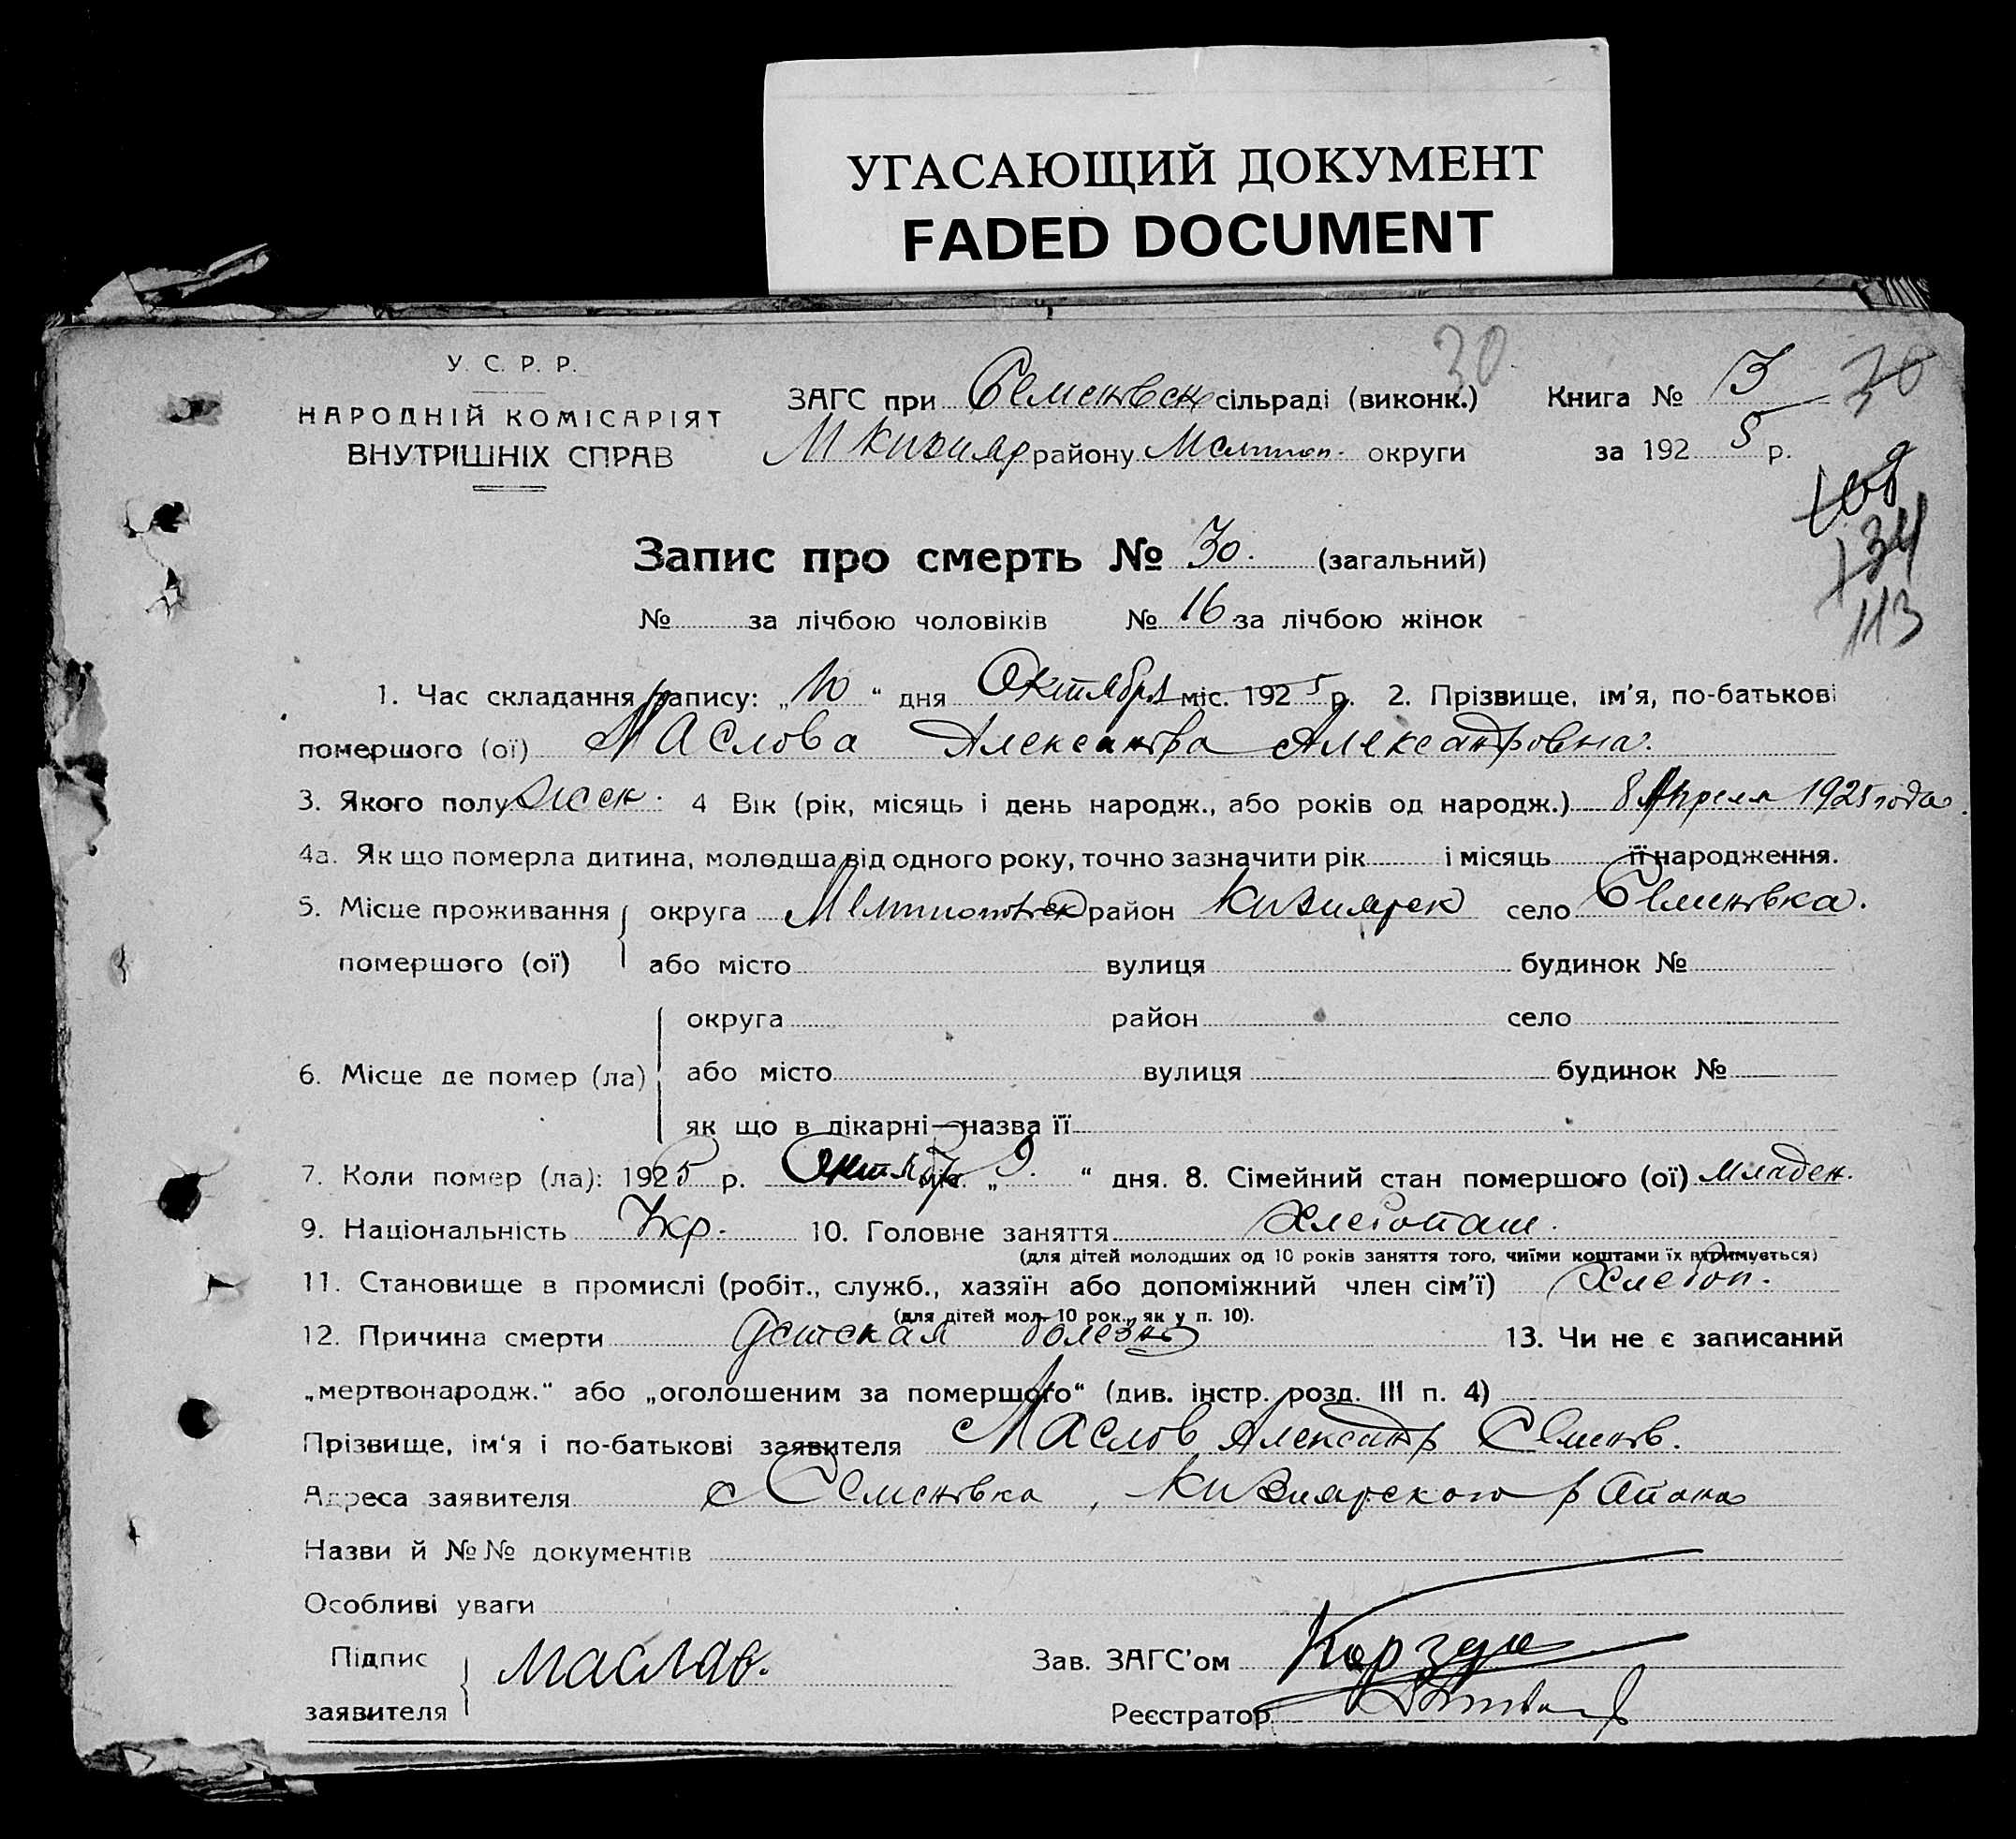 УГАСАЮЩИЙ ДОКУМЕНТ
FADED DOCUMENT
У. С. Р. Р.
НАРОДНІЙ КОМІСАРІЯТ
ВНУТРІШНІХ СПРАВ
30
ЗАГС при Семеновск сільраді (виконк.)
М Кизияр району Мелитоп. округи
Книга № 3
30
за 1925 р.
108
134
113
Запис про смерть № 30. (загальний)
№ за лічбою чоловіків № 16 за лічбою жінок
1. Час складання запису: „10“ дня Октября міс. 1925 р. 2. Прізвище, ім’я, по-батькові
помершого (ої) Маслова Александра Александровна.
3. Якого полу женск. 4 Вік (рік, місяць і день народж., або років од народж.) 8 Апреля 1925 года.
4а. Як що померла дитина, молодша від одного року, точно зазначити рік і місяць її народження.
5. Місце проживання округа Мелитопольск район Кизиярск село Семеновка.
помершого (ої) або місто вулиця будинок №
округа район село
6. Місце де помер (ла) або місто вулиця будинок №
як що в лікарні—назва її
7. Коли помер (ла): 1925 р. Октяб міс. „9.“ дня. 8. Сімейний стан помершого (ої) младен.
9. Національність Укр. 10. Головне заняття Хлебопаш.
(для дітей молодших од 10 років заняття того, чиїми коштами їх втримується)
11. Становище в промислі (робіт., служб., хазяїн або допоміжний член сім’ї) Хлебоп.
(для дітей мол. 10 рок., як у п. 10).
12. Причина смерти Детская болезнь 13. Чи не є записаний
„мертвонародж.“ або „оголошеним за помершого“ (див. інстр. розд. III п. 4)
Прізвище, ім‘я і по-батькові заявителя Маслов Александр Семенов.
Адреса заявителя с Семеновка, Кизиярского района
Назви й №№ документів
Особливі уваги
Підпис
заявителя
Маслов.
Зав. ЗАГС’ом
Реєстратор